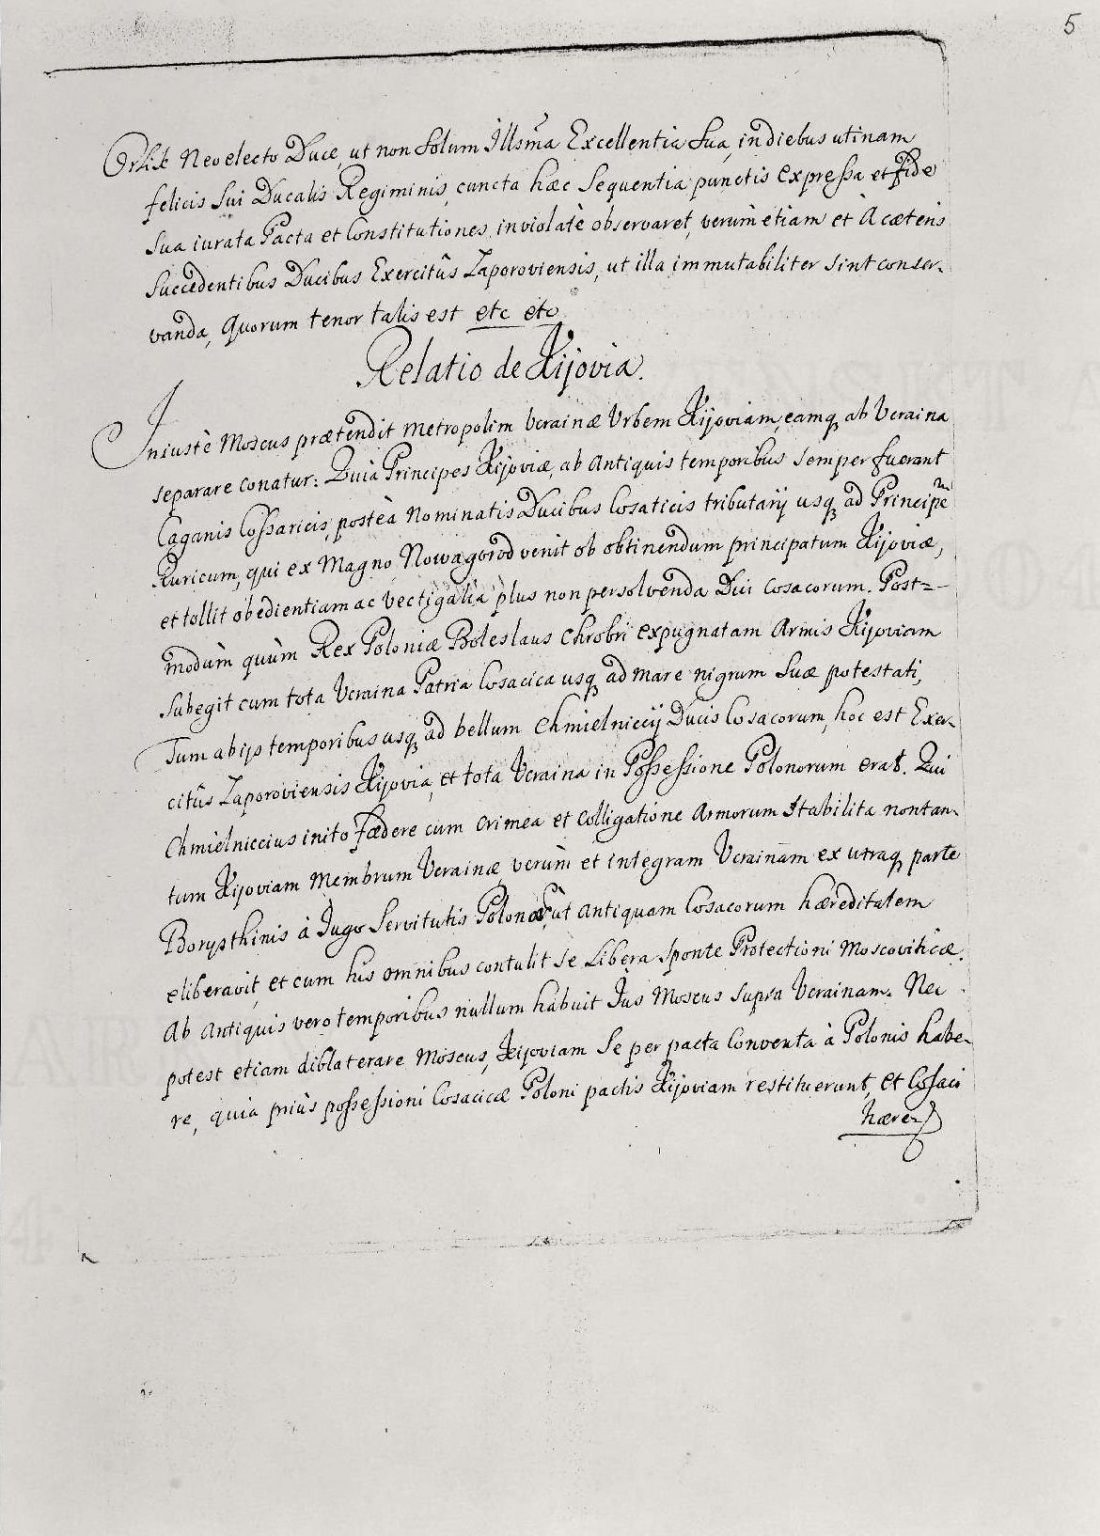 5
Orlik Neoelecto Duce, ut non solum Illsma Excellentia Sua, in diebus utinam
felicis sui Ducalis Regiminis, cuncta hæc sequentia punctis expressa et fide
sua iurata Pacta et Constitutiones inviolatè observaret, verùm etiam et à cæteris
succedentibus Ducibus Exercitûs Zaporoviensis, ut illa immutabiliter sint conser-
vanda, quorum tenor talis est etc etc
Relatio de Kijovia.
Iniustè Moscus prætendit metropolim Ucrainæ Urbem Kijoviam, eamq ab Ucraina
separare conatur: Quia Principes Kijoviæ, ab Antiquis temporibus semper fuerant
Caganis Cossaricis, posteà nominatis Ducibus Cosaticis tributarij usq ad Principem
Ruricum, qui ex Magno Nowagorod venit ob obtinendum principatum Kijoviæ,
et tollit obedientiam ac vectigalia plus non persolvenda Duci Cosacorum. Post=
modum quùm Rex Poloniæ Boleslaus Chrobri expugnatam Armis Kijoviam
subegit cum tota Ucraina Patria Cosacica usq ad mare nigrum suæ potestati,
Tum ab ijs temporibus usq ad bellum Chmielniccij Ducis Cosacorum, hoc est Exer-
citûs Zaporoviensis Kijovia, et tota Ucraina in Possessione Polonorum erat. Qui
Chmielniccius inito fœdere cum Crimea et colligatione Armorum stabilita non tan-
tum Kijoviam Membrum Ucrainæ verùm et integram Ucrainam ex utraq parte
Borysthinis à Jugo Servitutis ut antiquam Cosacorum hæreditatem
eliberavit, et cum his omnibus contulit se Libera sponte Protectioni Moscoviticæ.
Ab Antiquis vero temporibus nullum habuit Jus Moscus supra Ucrainam. Nec
potest etiam diblaterare Moscus, Kijoviam se per pacta Conventa à Polonis habe-
re, quia priùs possessioni Cosacicæ Poloni pactis Kijoviam restituerunt, et Cossaci
hære-